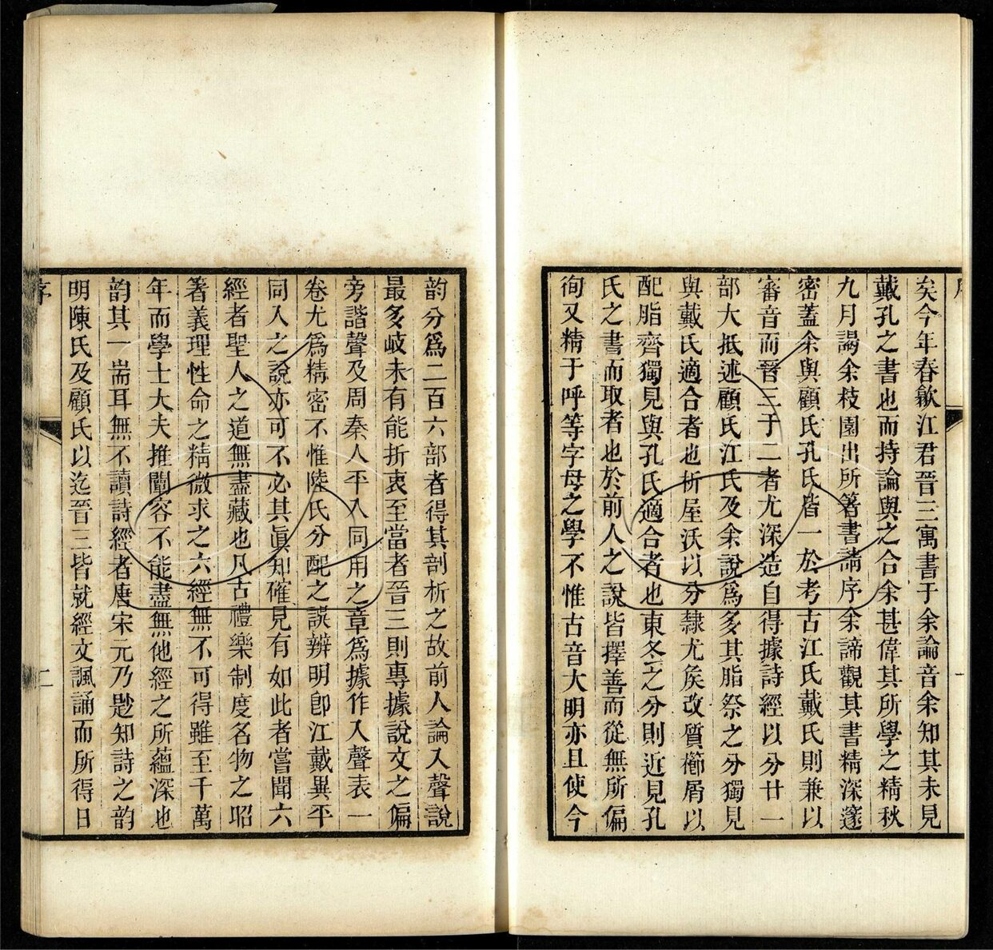 矣今年春歙江君晉三寓書于余論音余知其未見
戴孔之書也而持論與之合余甚偉其所學之精秋
九月謁余枝園出所箸書請序余諦觀其書精深邃
密蓋余與顧氏孔氏皆一於考古江氏戴氏則兼以
審音而晉三于二者尤深造自得據詩經以分廿一
部大抵述顧氏江氏及余說爲多其脂祭之分獨見
與戴氏適合者也析屋沃以分隸尤矦改質櫛屑以
配脂齊獨見與孔氏適合者也東冬之分則近見孔
氏之書而取者也於前人之說皆擇善而從無所偏
徇又精于呼等字母之學不惟古音大明亦且使今
韵分爲二百六部者得其剖析之故前人論入聲說
最多岐未有能折衷至當者晉三則專據說文之偏
旁諧聲及周秦人平入同用之章爲據作入聲表一
卷尤爲精密不惟陸氏分配之誤辨明卽江戴異平
同入之說亦可不必其眞知確見有如此者嘗聞六
經者聖人之道無盡藏也凡古禮樂制度名物之昭
著義理性命之精微求之六經無不可得雖至千萬
年而學士大夫推闡容不能盡無他經之所蘊深也
韵其一耑耳無不讀詩經者唐宋元乃尟知詩之韵
明陳氏及顧氏以迄晉三皆就經文諷誦而所得日
序
二